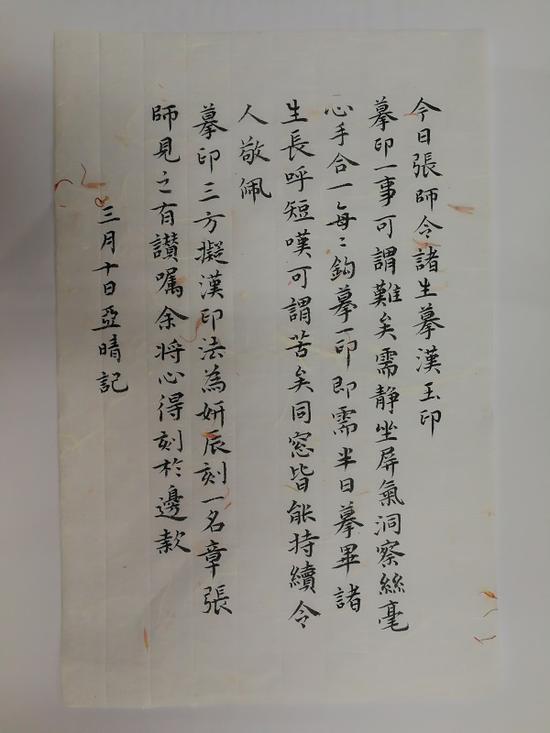 今日張師令諸生摹漢玉印
摹印一事可謂難矣需静坐屏氣洞察絲毫
心手合一每〻鈎摹一印即需半日摹畢諸
生長呼短嘆可謂苦矣同窓皆能持續令
人敬佩
摹印三方擬漢印法為妍辰刻一名章張
師見之有讃囑余將心得刻於邊款
三月十日亞晴記